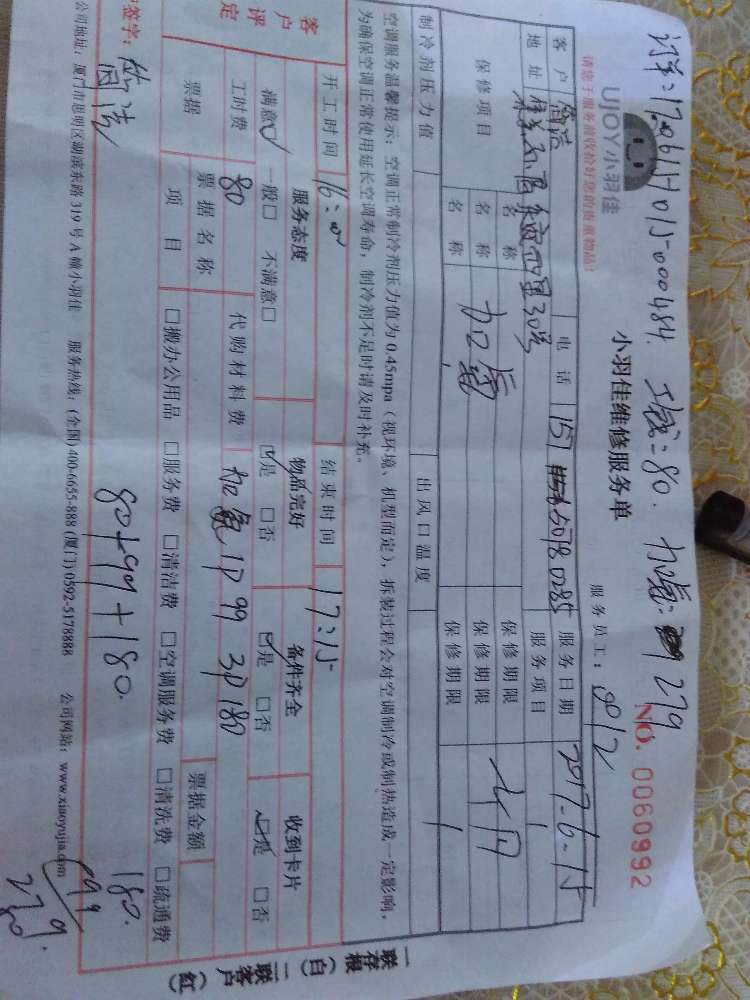 170614015-000484. 工时:80. 加氟: 279
UJOY小羽佳
小羽佳维修服务单
NO. 0060992
请您于服务前收拾好您的贵重物品!
服务员工:
客户 电话 151 50780285 服务日期 2017-6-15
地址 30号 服务项目
保修项目 名称 保修期限
名称 加氟 保修期限
名称 保修期限
制冷剂压力值 出风口温度
空调服务温馨提示:空调正常制冷剂压力值为0.45mpa(视环境、机型而定),拆装过程会对空调制冷或制热造成一定影响,
为确保空调正常使用延长空调寿命,制冷剂不足时请及时补充。
开工时间 16:00 结束时间 17:15
客户评定 服务态度 物品完好 备件齐全 收到卡片
满意☑ 一般□ 不满意□ ☑是 □否 ☑是 □否 ☑是 □否
工时费 80 代购材料费 加氟1P 99 3P 180
票据 票据名称 票据金额
项目 □搬办公用品 □服务费 □清洁费 □空调服务费 □清洗费 □疏通费
签字: 80+99+180.
180.
99
279.
公司地址:厦门市思明区湖滨东路319号A幢小羽佳 服务热线:(全国)400-6655-888 (厦门)0592-5178888 公司网站:www.xiaoyujia.com
一联存根(白) 二联客户(红)